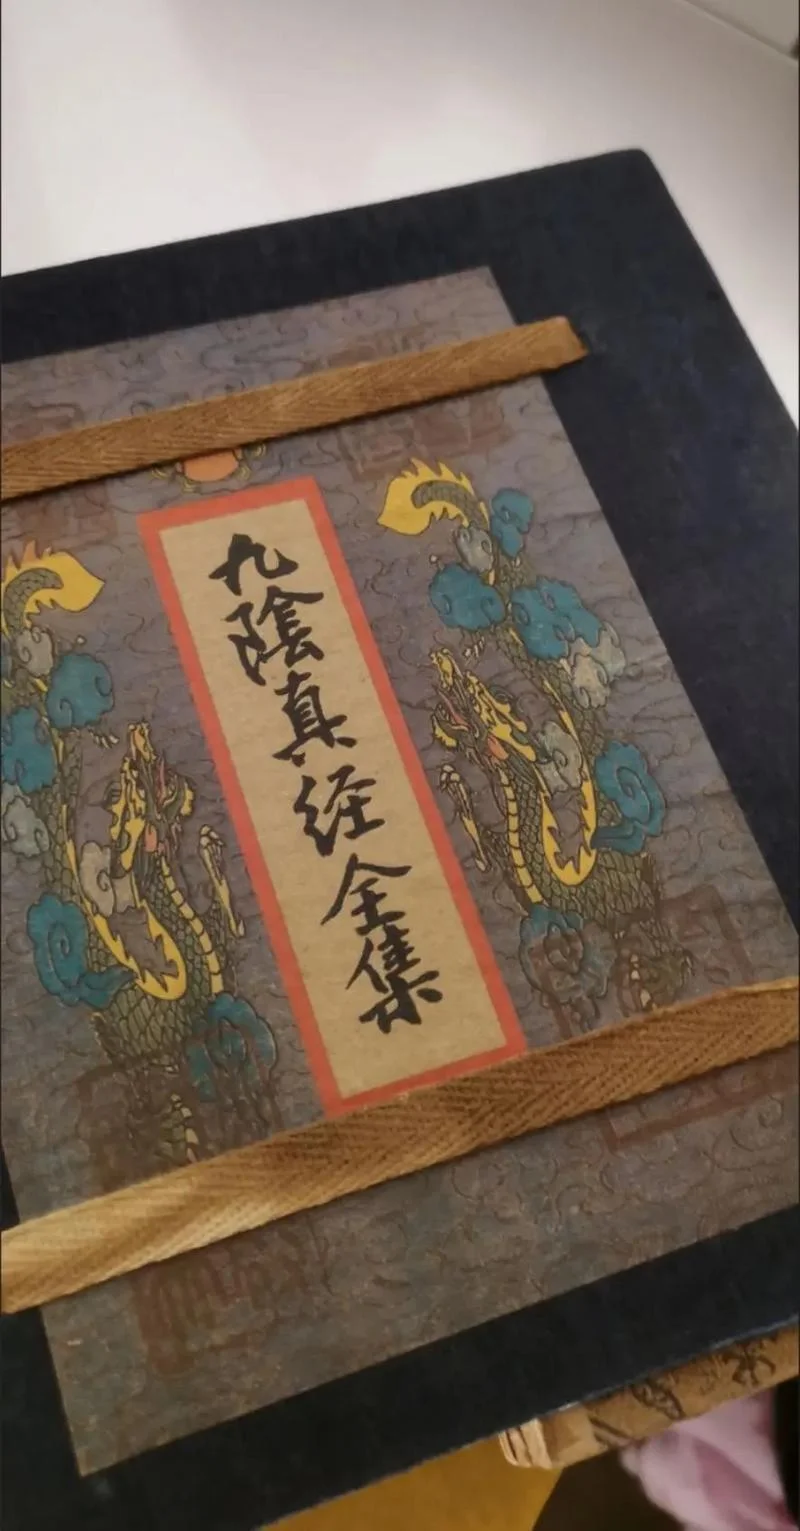 九陰真经全集